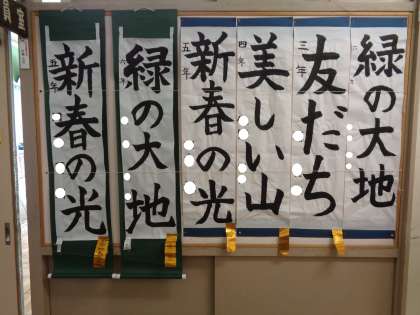 緑の大地
六年
友だち
三年
美しい山
四年
新春の光
五年
緑の大地
六年
新春の光
五年